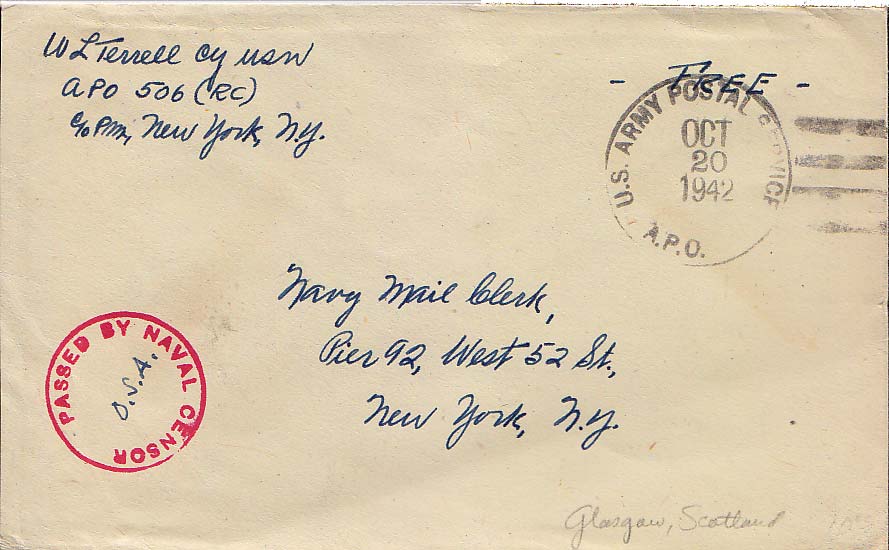 W L Terrell Cy USN
APO 506 (RC)
c/o PM, New York, N.Y.
- FREE -
U.S. ARMY POSTAL SERVICE
OCT
20
1942
A.P.O.
Navy Mail Clerk,
Pier 92, West 52 St.,
New York, N.Y.
PASSED BY NAVAL CENSOR
Glasgow, Scotland